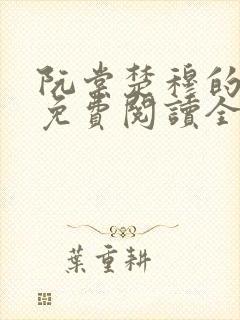 阮棠楚穆的
免費閱讀全
葉重耕